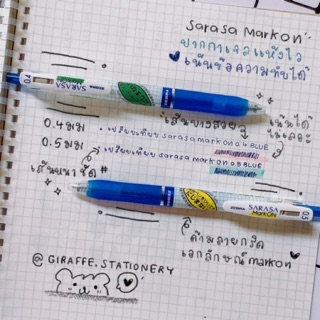 sarasa markon
ปากกาเจลแห้งไว
เน้นข้อความทับได้
SARASA
0.4
เส้นบางสวย
เน้นได้
ไม่เลอะ
0.4 มม
0.5 มม
เปรียบเทียบ sarasa markon 0.4 BLUE
เปรียบเทียบ sarasa markon 0.5 BLUE
เส้นหนาชัด
SARASA
MARKON
0.5
ด้ามลายกริด
เอกลักษณ์ markon
@ GIRAFFE.STATIONERY